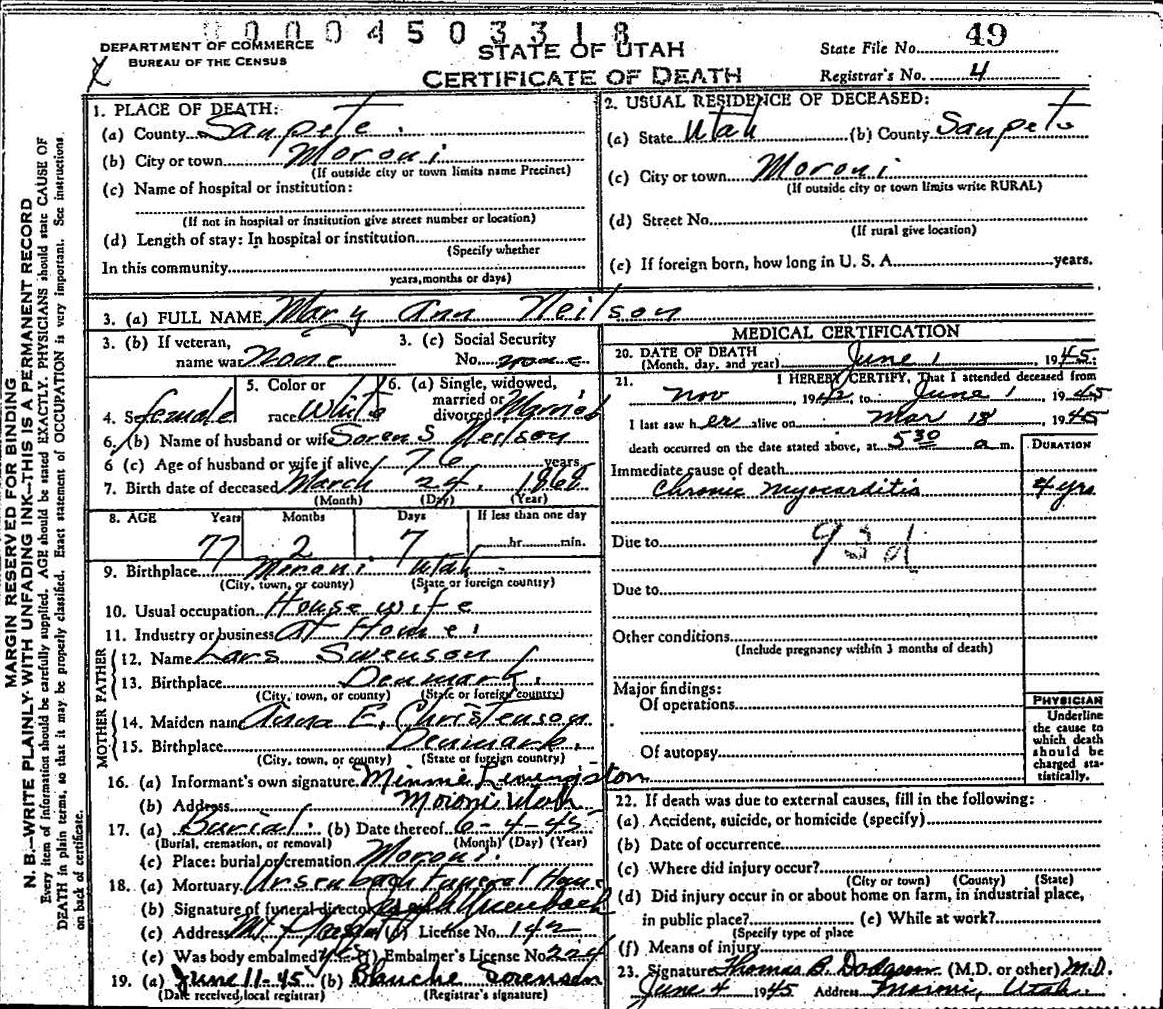 00004503318
DEPARTMENT OF COMMERCE
BUREAU OF THE CENSUS
X
STATE OF UTAH
CERTIFICATE OF DEATH
State File No. 49
Registrar's No. 4
MARGIN RESERVED FOR BINDING
N. B.—WRITE PLAINLY WITH UNFADING INK—THIS IS A PERMANENT RECORD
Every item of information should be carefully supplied. AGE should be stated EXACTLY. PHYSICIANS should state CAUSE OF
DEATH in plain terms, so that it may be properly classified. Exact statement of OCCUPATION is very important. See instructions
on back of certificate.
1. PLACE OF DEATH:
(a) County Sanpete
(b) City or town Moroni
(If outside city or town limits name Precinct)
(c) Name of hospital or institution:
(If not in hospital or institution give street number or location)
(d) Length of stay: In hospital or institution
(Specify whether
In this community
years, months or days)
2. USUAL RESIDENCE OF DECEASED:
(a) State Utah (b) County Sanpete
(c) City or town Moroni
(If outside city or town limits write RURAL)
(d) Street No.
(If rural give location)
(e) If foreign born, how long in U. S. A. years.
3. (a) FULL NAME Mary Ann Neilson
3. (b) If veteran,
name war None
3. (c) Social Security
No. none
4. Sex female
5. Color or
race White
6. (a) Single, widowed,
married or
divorced Married
6. (b) Name of husband or wife Soren S Neilson
6 (c) Age of husband or wife if alive 76 years
7. Birth date of deceased March 24, 1868
(Month) (Day) (Year)
8. AGE Years Months Days If less than one day
77 2 7 hr. min.
9. Birthplace Moroni Utah
(City, town, or county) (State or foreign country)
10. Usual occupation House wife
11. Industry or business At Home
FATHER
12. Name Lars Swenson
13. Birthplace Denmark
(City, town, or county) (State or foreign country)
MOTHER
14. Maiden name Anna E. Christenson
15. Birthplace Denmark
(City, town, or county) (State or foreign country)
16. (a) Informant's own signature Minnie Livingston
(b) Address Moroni, Utah
17. (a) Burial (b) Date thereof 6-4-45
(Burial, cremation, or removal) (Month) (Day) (Year)
(c) Place: burial or cremation Moroni
18. (a) Mortuary Ursenbach Funeral Home
(b) Signature of funeral director Ursenbach
(c) Address Mt Pleasant (d) License No. 142
(e) Was body embalmed? yes (f) Embalmer's License No. 224
19. (a) June 11-45 (b) Blanche Sorensen
(Date received local registrar) (Registrar's signature)
MEDICAL CERTIFICATION
20. DATE OF DEATH June 1 1945
(Month, day, and year)
21. I HEREBY CERTIFY, That I attended deceased from
Nov 1942, to June 1 1945
I last saw her alive on Mar 18, 1945
death occurred on the date stated above, at 530 a m.
DURATION
Immediate cause of death
Chronic Myocarditis 4 yrs
Due to 93d
Due to
Other conditions
(Include pregnancy within 3 months of death)
Major findings:
Of operations
Of autopsy
PHYSICIAN
Underline
the cause to
which death
should be
charged sta-
tistically.
22. If death was due to external causes, fill in the following:
(a) Accident, suicide, or homicide (specify)
(b) Date of occurrence
(c) Where did injury occur?
(City or town) (County) (State)
(d) Did injury occur in or about home on farm, in industrial place,
in public place? (e) While at work?
(Specify type of place
(f) Means of injury
23. Signature Thomas B. Dodgson (M.D. or other) M.D.
June 4 1945 Address Moroni, Utah